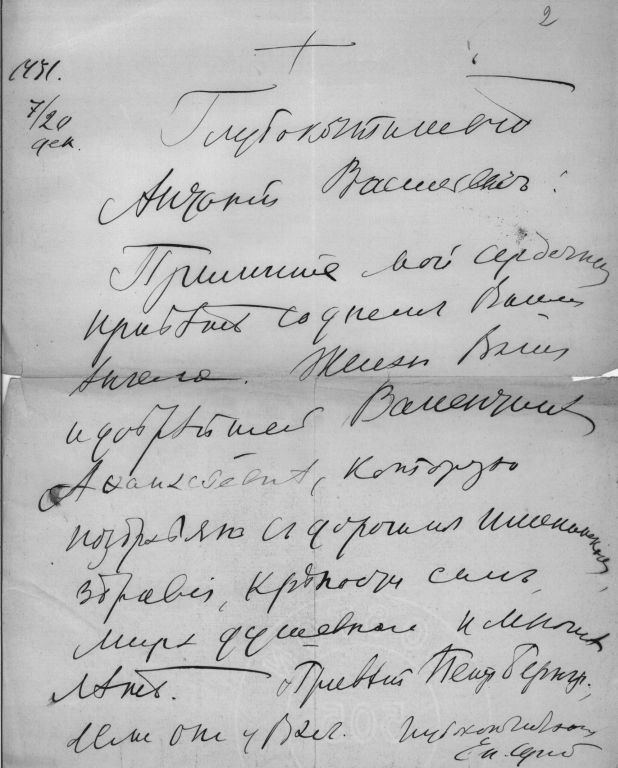 2
1931.
7/20
дек.
Глубокочтимый
Антоній Васильевичъ!
Примите мой сердечный
привѣтъ со днемъ Вашего
Ангела. Желаю Вамъ
и добрѣйшей Валентинѣ
, которую
поздравляю съ дорогимъ именинникомъ,
здравія, крѣпости силъ,
мира душевнаго и многая
лѣта. Привѣтъ
если они у Васъ.